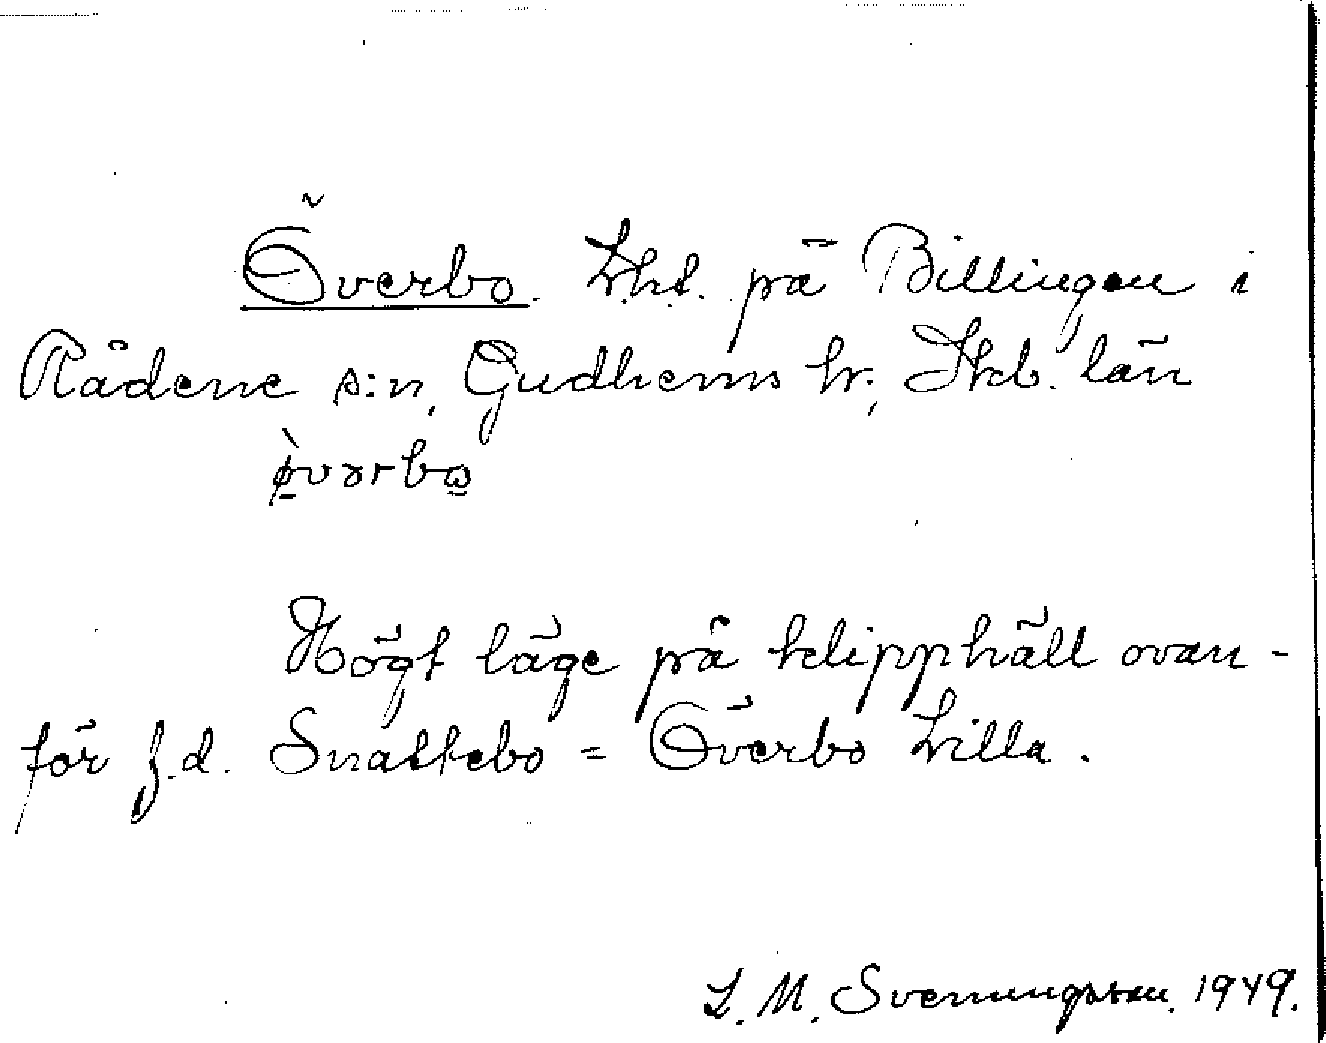 Överbo. Lht. på Billingen i
Rådene s:n, Gudhems hr; Skb. län
ø̀vərbω
Högt läge på klipphäll ovan-
för f.d. Snattebo = Överbo Lilla.
L. M. Svenungsson. 1949.